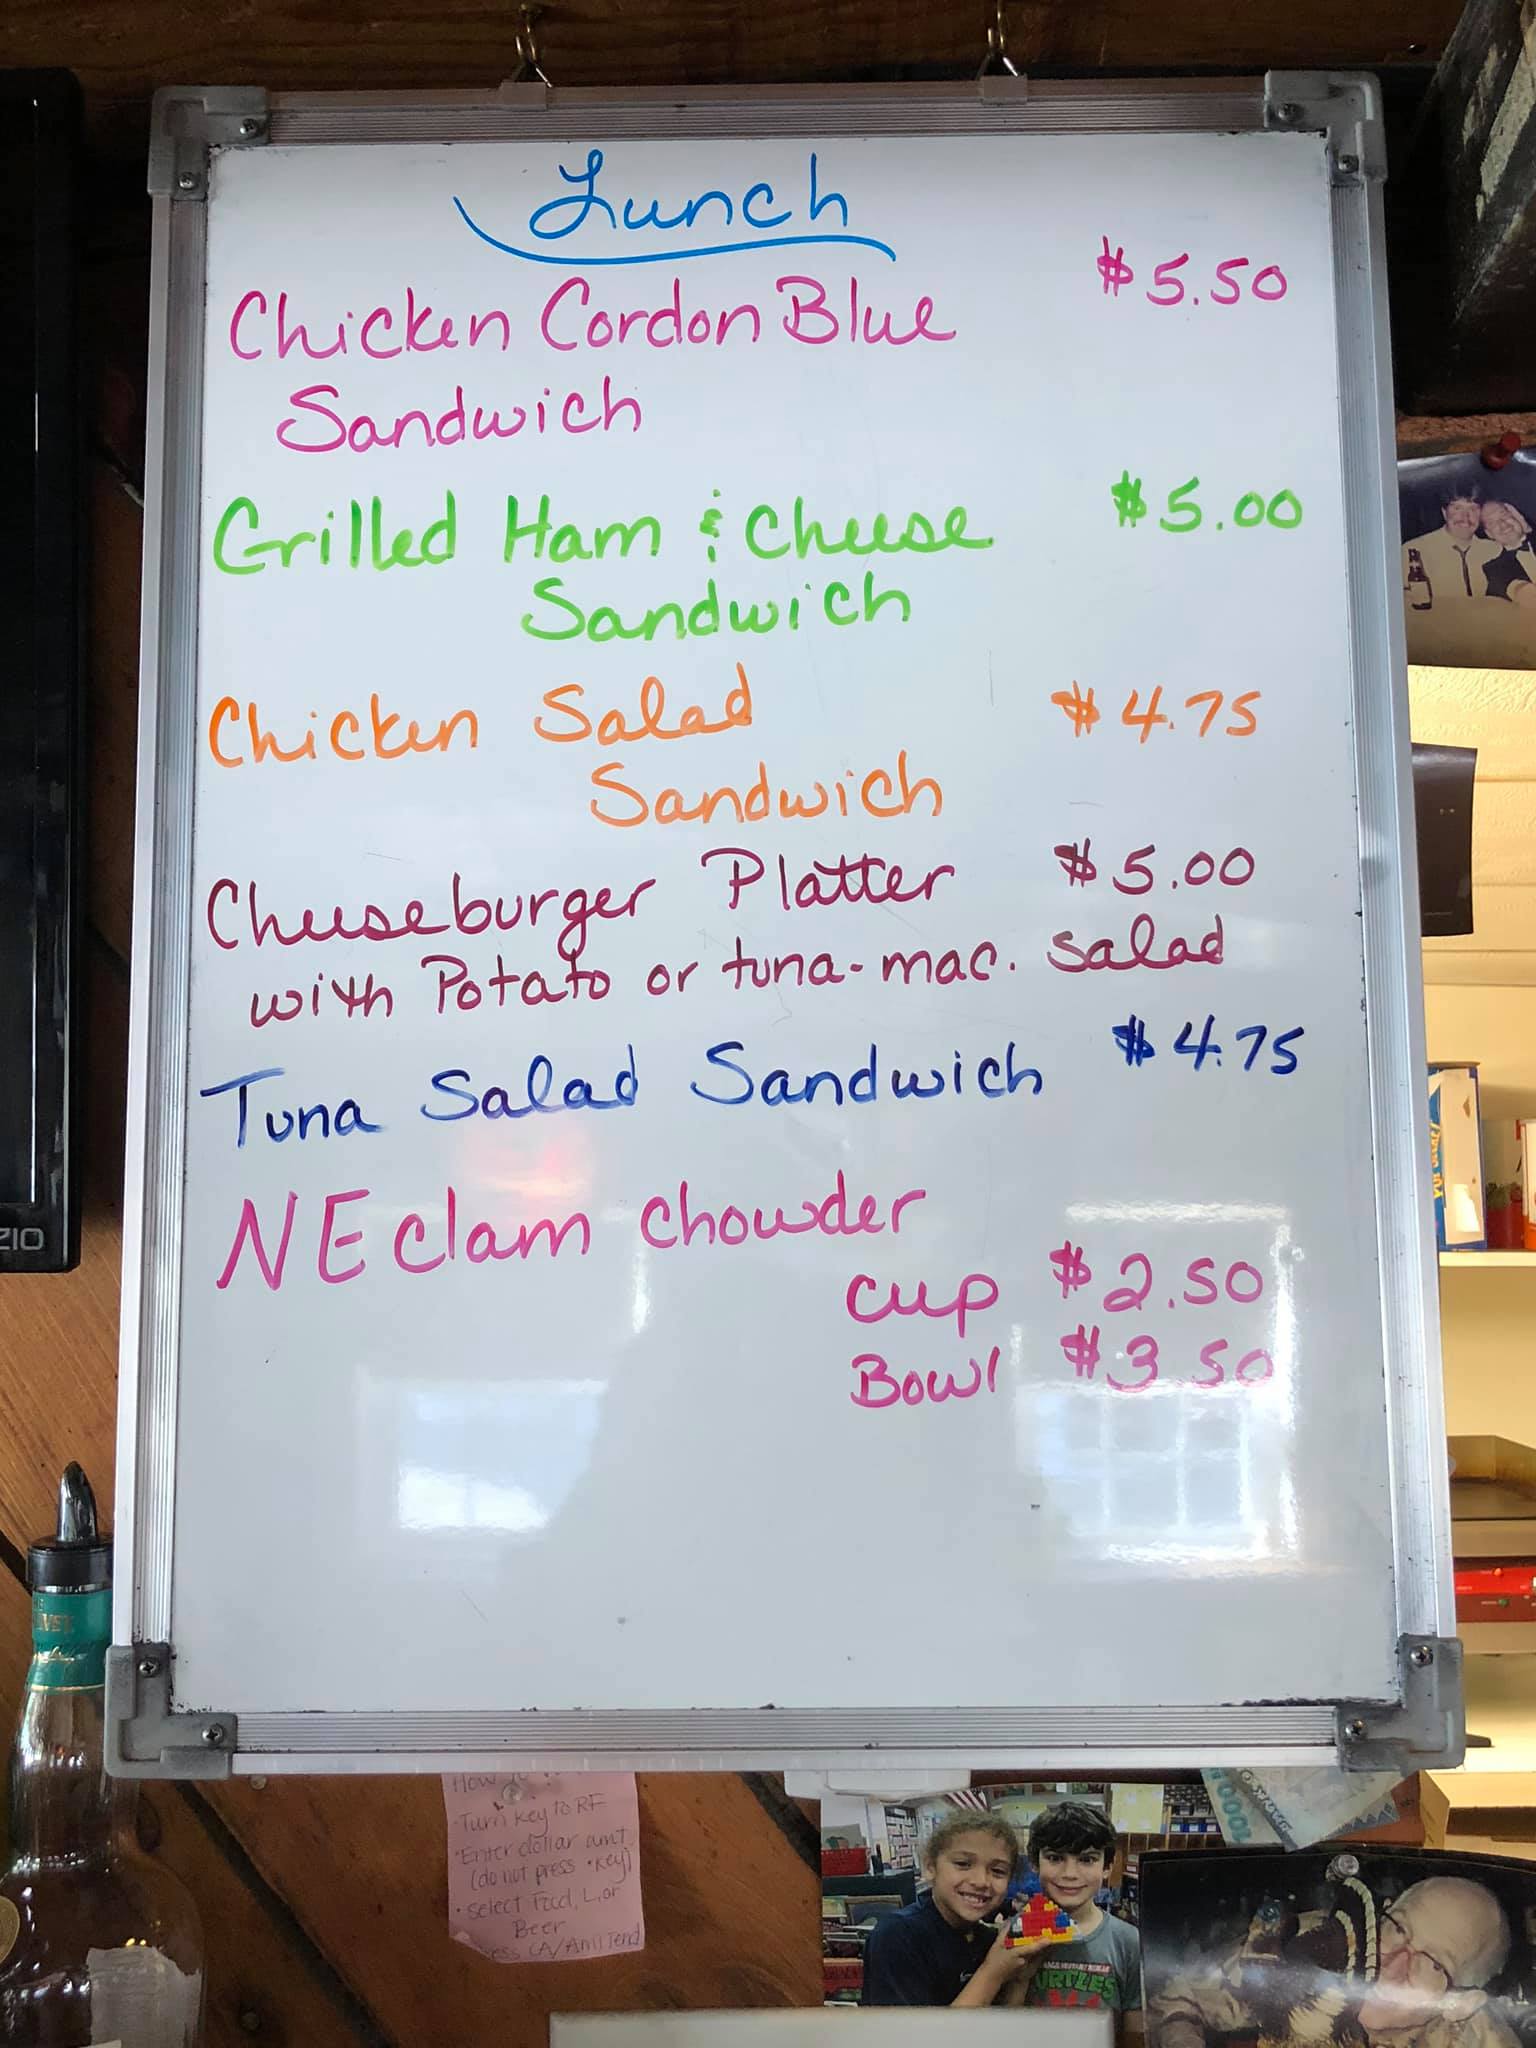 Lunch
Chicken Cordon Blue $5.50
Sandwich
Grilled Ham & Cheese $5.00
Sandwich
Chicken Salad $4.75
Sandwich
Cheeseburger Platter $5.00
with Potato or tuna-mac. salad
Tuna Salad Sandwich $4.75
NE clam chowder
cup $2.50
Bowl $3.50
ZIO
How
· Turn key to RF
· Enter dollar amt
(do not press · key)
· select Food, L, or
Beer
CA/Amt Tend
TURTLES